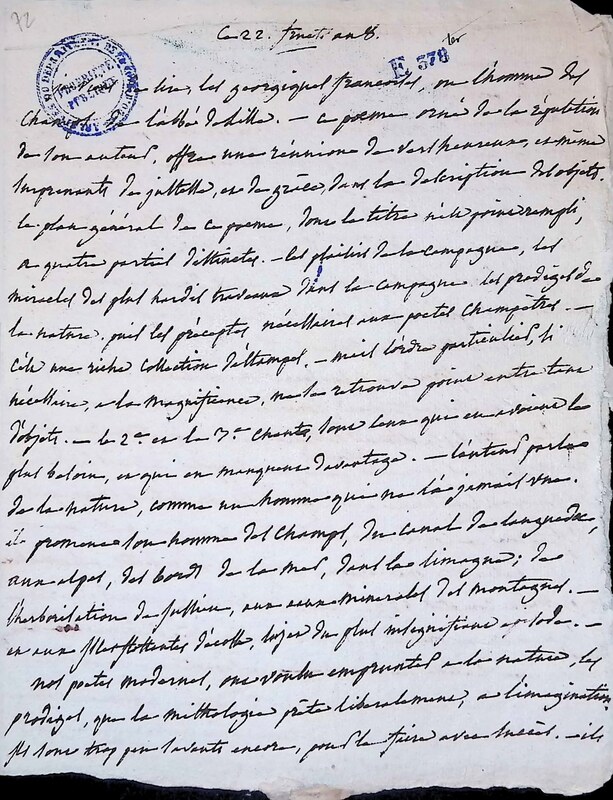 72
Ce 22. fructi. an 8.
E 378 ter
lire, les georgiques françoises, ou l'homme des
champs, de l'abbé Delille. — ce poeme, orné de la réputation
de son auteur, offre une réunion de vers heureux, et même
surprenants de justesse, et de grâce, dans la description des objets.
le plan général de ce poeme, dont le titre n'est point rempli,
a quatre parties distinctes. — les plaisirs de la campagne, les
miracles des plus hardis travaux dans la campagne les prodiges de
la nature, puis les préceptes nécessaires aux poetes champêtres. —
C'est une riche collection d'estampes. — mais l'ordre particulier, si
nécessaire, à la magnificence, ne se retrouve point entre tant
d'objets. — le 2e. et le 3e. chants, sont ceux qui en avoient le
plus besoin, et qui en manquent davantage. — l'auteur parle
de la nature, comme un homme que ne l'a jamais vue.
il promene son homme des champs, du canal de languedoc,
aux alpes, des bords de la mer, dans la limagne; de
l'herborisation de Jussieu, aux eaux minerales des montagnes. —
et aux d'école, sujet du plus insignifiant episode. —
nos poetes modernes, ont voulu emprunter à la nature, les
prodiges, que la mithologie prête liberalement, à l'imagination.
ils sont trop peu savants encore, pour le faire avec succès. — ils